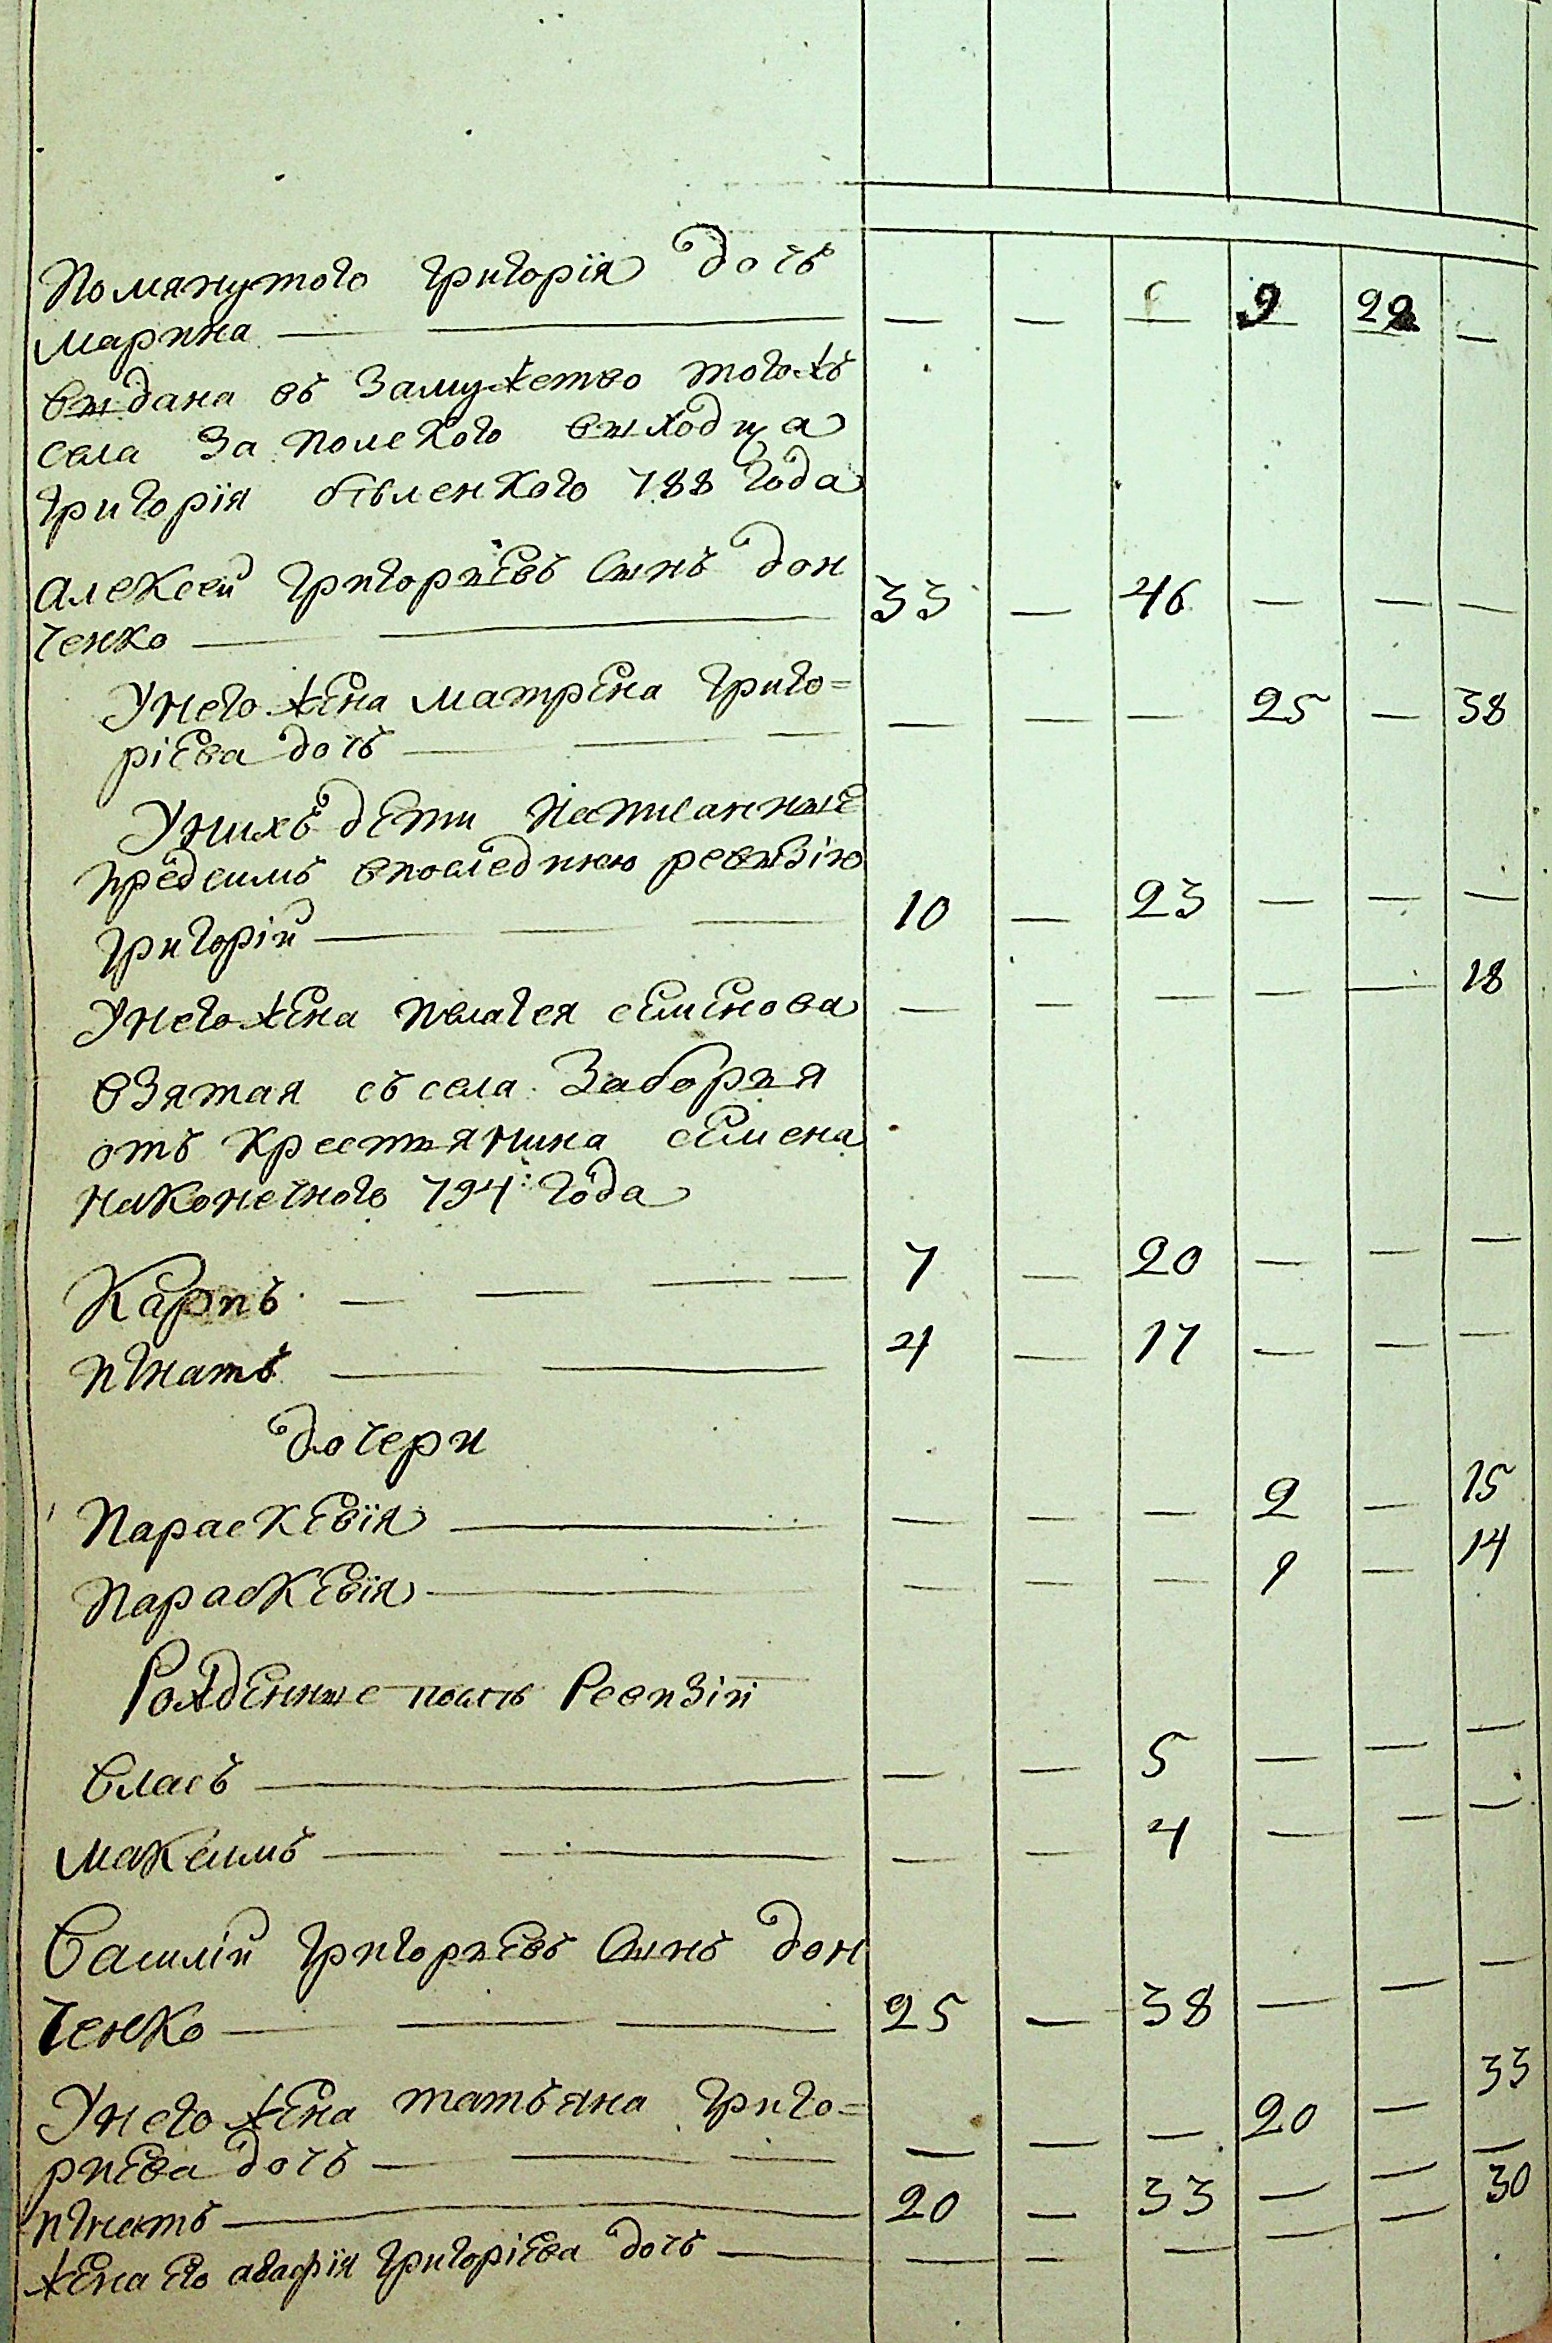 Помянутого григорїя дочъ
марина — — — — 9 22 —
выдана въ замужетво тогожъ
села за полского выходца
григорїя бѣленкого 788 года
алексей григориевъ сынъ дон
ченко — 33 — 46 — — —
У него жена матрена григо=
рїева дочъ — — — — 25 — 38
У нихъ дети написанные
предсимъ впоследнюю ревизїю
григорїй — 10 — 23 — — —
У него жена пелагея семенова — — — — — 18
взятая съ села Заборья
отъ крестьянина семена
наконечного 794: года
Карпъ — 7 — 20 — — —
игнатъ — 4 — 17 — — —
дочери
Параскевїя — — — — 2 — 15
Параскевїя — — — — 1 — 14
Рожденные послѣ Ревизїи
Власъ — — — 5 — — —
максимъ — — — 4 — — —
Василїй григориевъ сынъ дон
ченко — 25 — 38 — — —
У него жена татьяна григо=
риева дочъ — — — — 20 — 33
игнатъ — 20 — 33 — — —
жена его агафїя григорїева дочъ — — — — — — 30